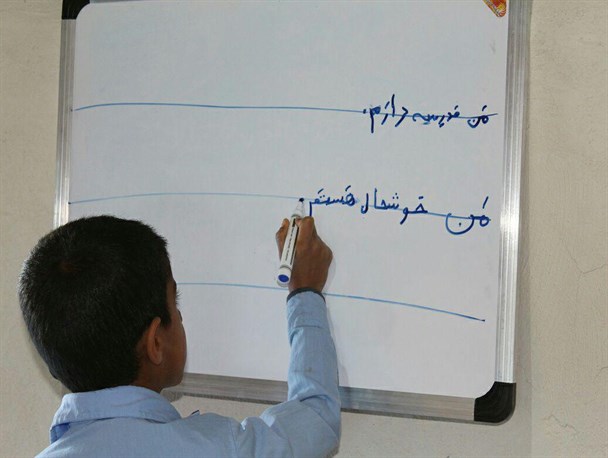 من مدرسه دارم.
من خوشحال هستم.